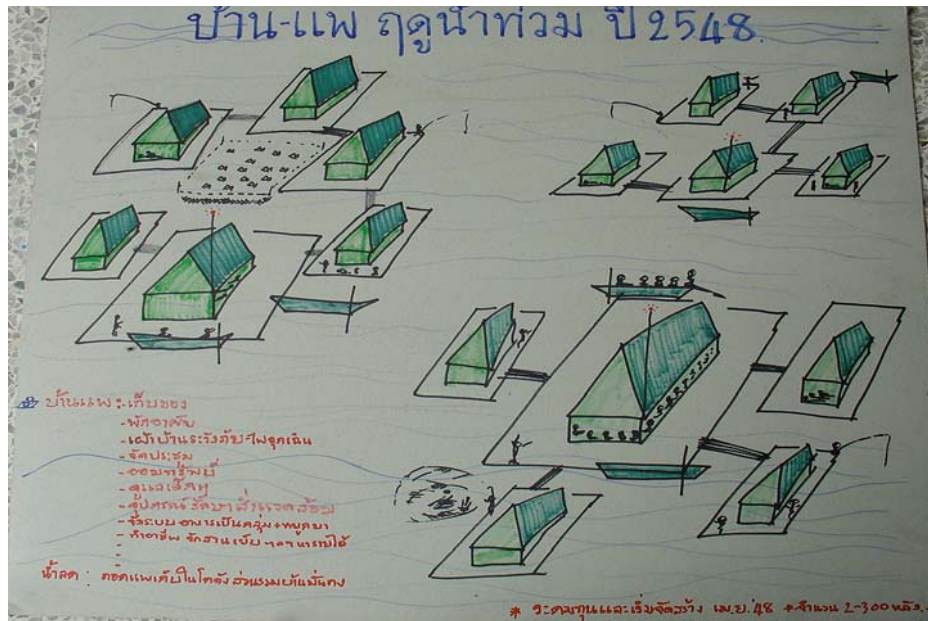 บ้าน-แพ ฤดูน้ำท่วม ปี 2548.
บ้านแพ :- เก็บของ
- พักอาศัย
- เฝ้าบ้านระวังภัย-ไฟฉุกเฉิน
- จัดประชุม
- ออมทรัพย์
- ดูแลเด็กๆ
- อุปกรณ์รักษาสิ่งแวดล้อม
- จัดระบบอาคารเป็นกลุ่ม
- ทำอาชีพ จักสาน เย็บ
น้ำลด : ถอดแพเก็บในโกดังส่วนรวม
* ระดมทุนและเริ่มจัดสร้าง เม.ย.'48 จำนวน 2-300 หลัง.